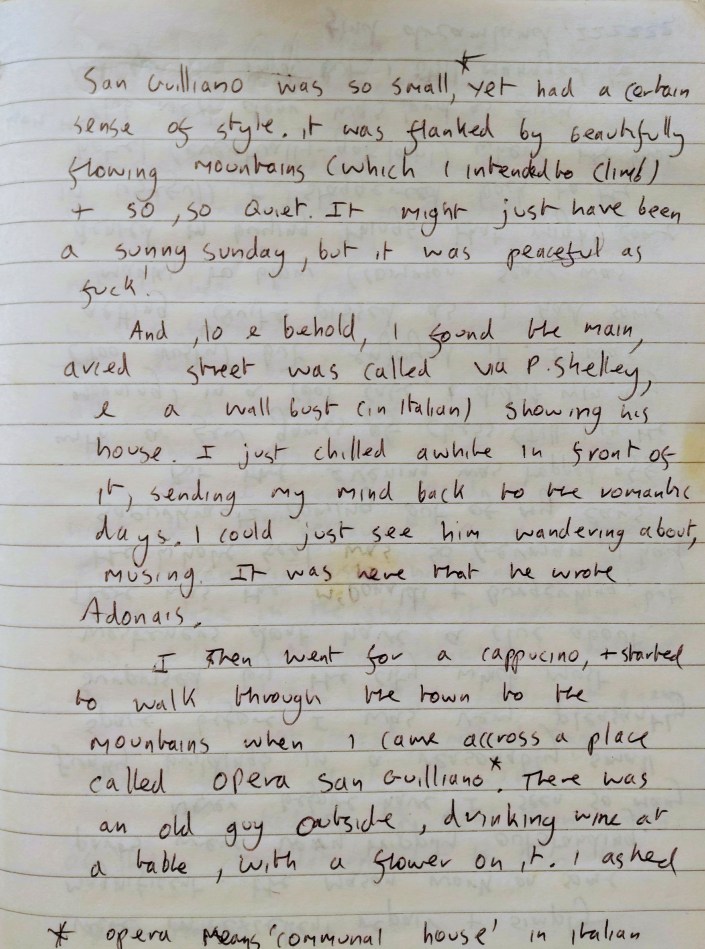 San Guilliano was so small,* yet had a certain
sense of style. it was flanked by beautifully
flowing mountains (which I intended to climb)
+ so, so quiet. It might just have been
a sunny sunday, but it was peaceful as
fuck!
And, lo e behold, I found the main,
street was called via P. Shelley,
e a wall bust (in Italian) showing his
house. I just chilled awhile in front of
it, sending my mind back to the romantic
days. I could just see him wandering about,
musing. It was here that he wrote
Adonais.
I then went for a cappucino, + started
to walk through the town to the
mountains when I came accross a place
called opera san Guilliano*. There was
an old guy outside, drinking wine at
a table, with a flower on it. I asked
* opera means 'communal house' in italian